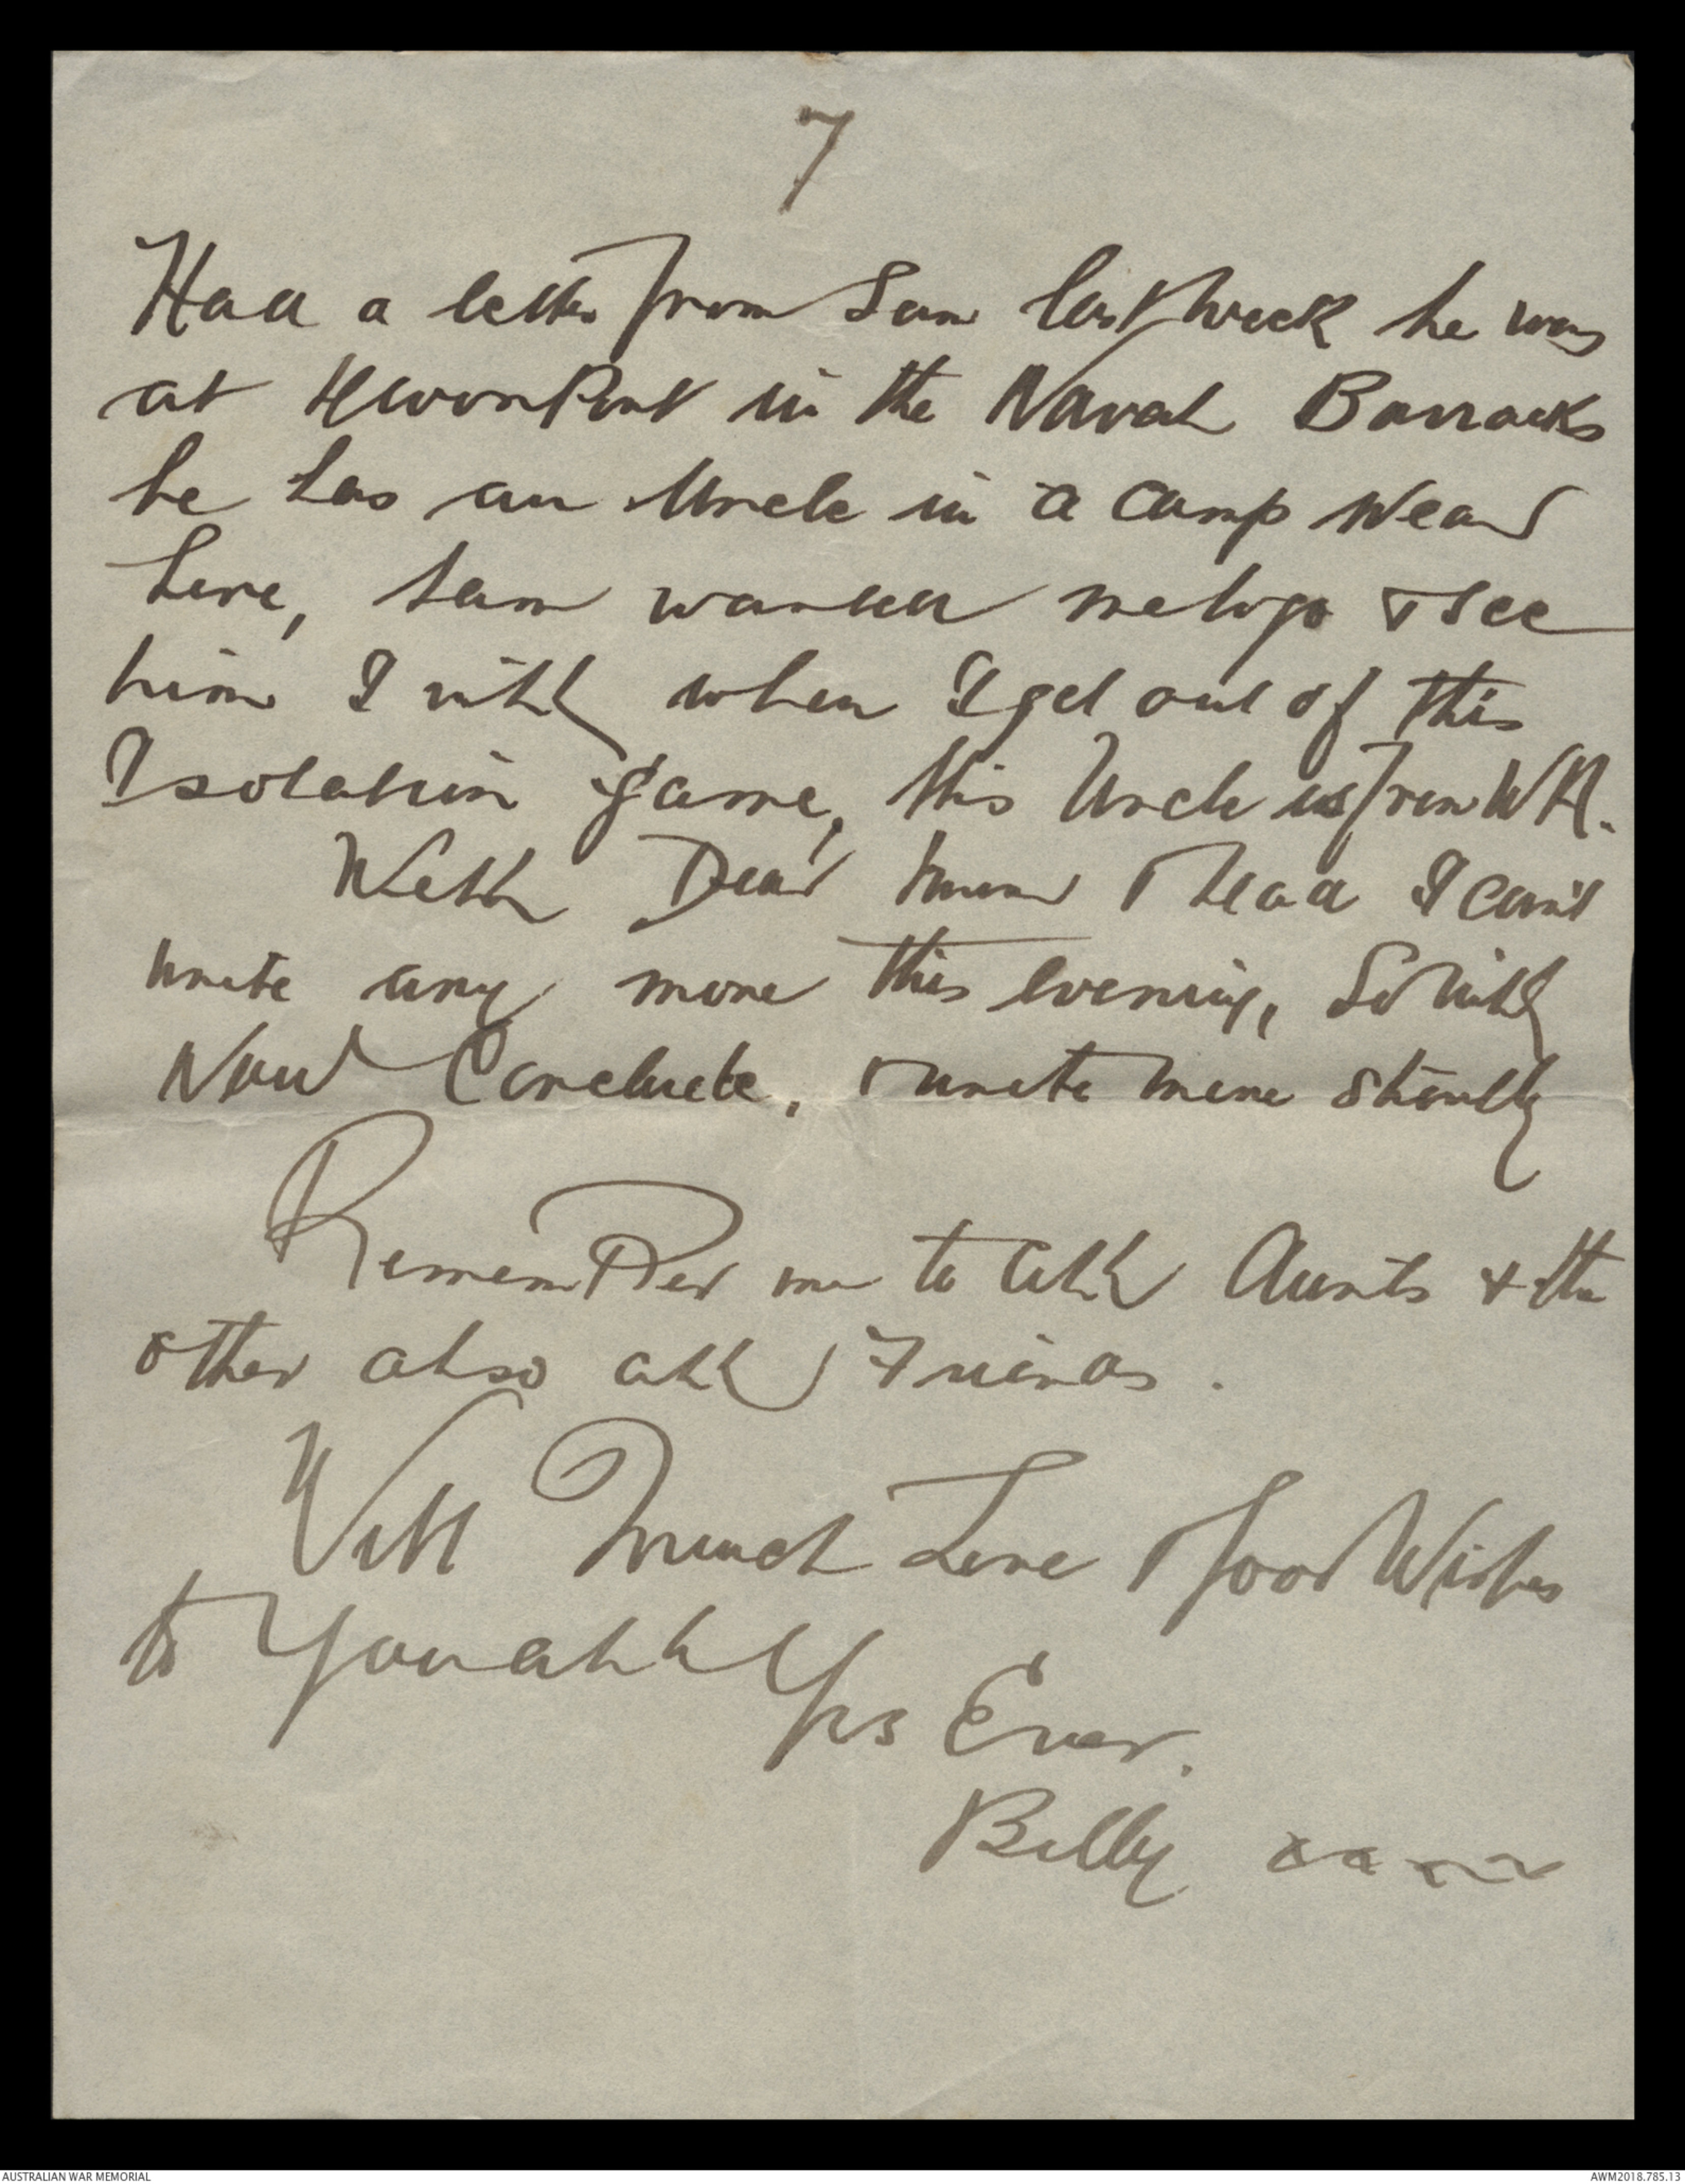 7
Had a letter from Sam last week he was
at Devonport in the Naval Barracks
he has an Uncle in a camp Near
here, Sam wanted me to go & see
him I will when I get out of this
Isolation game, this Uncle is from WA.
Well Dear Mum & Dad I can't
write any more this evening, So will
Now Conclude, & write more shortly
Remember me to all Aunts & the
other also all Friends.
With Much Love & Good Wishes
to You all Yrs Ever.
Billy
AUSTRALIAN WAR MEMORIAL
AWM2018.785.13